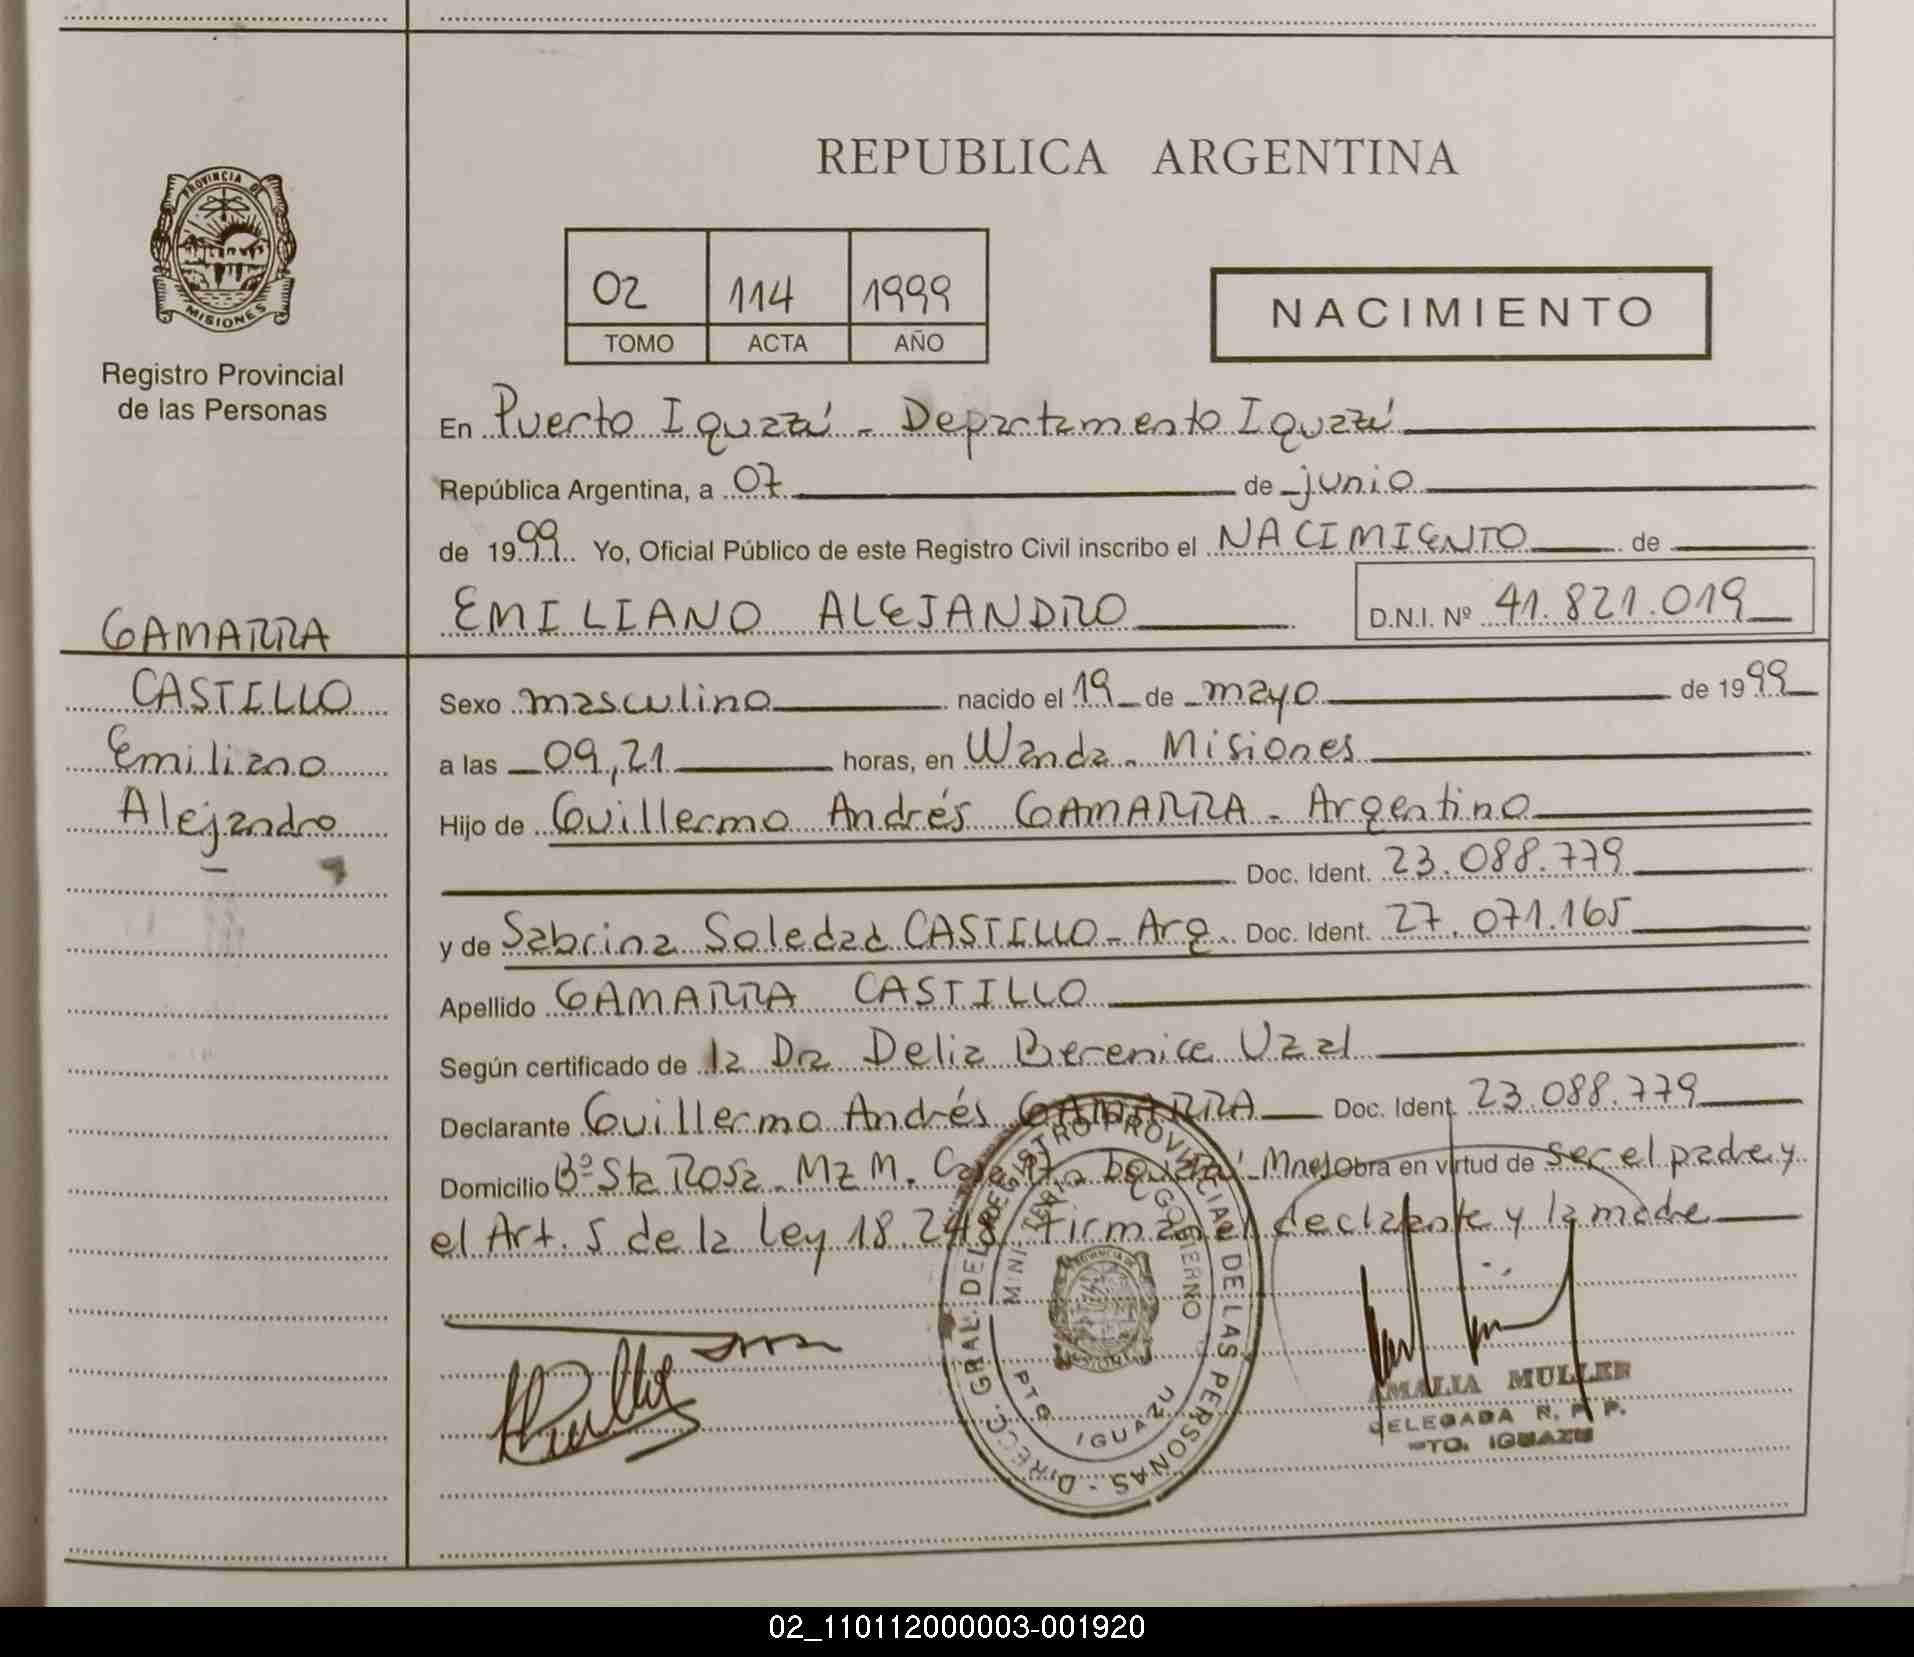 REPUBLICA ARGENTINA
PROVINCIA DE
MISIONES
Registro Provincial
de las Personas
02 114 1999
TOMO ACTA AÑO
NACIMIENTO
En Puerto Iguazú - Departamento Iguazú
República Argentina, a 07 de junio
de 1999 Yo, Oficial Público de este Registro Civil inscribo el NACIMIENTO de
EMILIANO ALEJANDRO D.N.I. Nº 41.821.019
GAMARRA
CASTILLO
Emiliano
Alejandro
Sexo masculino nacido el 19 de mayo de 1999
a las 09,21 horas, en Wanda - Misiones
Hijo de Guillermo Andrés GAMARRA - Argentino
Doc. Ident. 23.088.779
y de Sabrina Soledad CASTILLO - Arg. Doc. Ident. 27.071.165
Apellido GAMARRA CASTILLO
Según certificado de la Dra Delia Berenice Uzal
Declarante Guillermo Andrés GAMARRA Doc. Ident. 23.088.779
Domicilio Bº Sta Rosa - Mz M. Iguazú - Mnes Obra en virtud de ser el padre y
el Art. 5 de la Ley 18.248. Firman el declarante y la madre
DIRECC. GRAL. DEL REGISTRO PROVINCIAL DE LAS PERSONAS -
MINISTERIO GOBIERNO
PROVINCIA DE
MISIONES
PTO IGUAZU
AMALIA MULLER
DELEGADA R. P. P.
PTO. IGUAZU
02_110112000003-001920